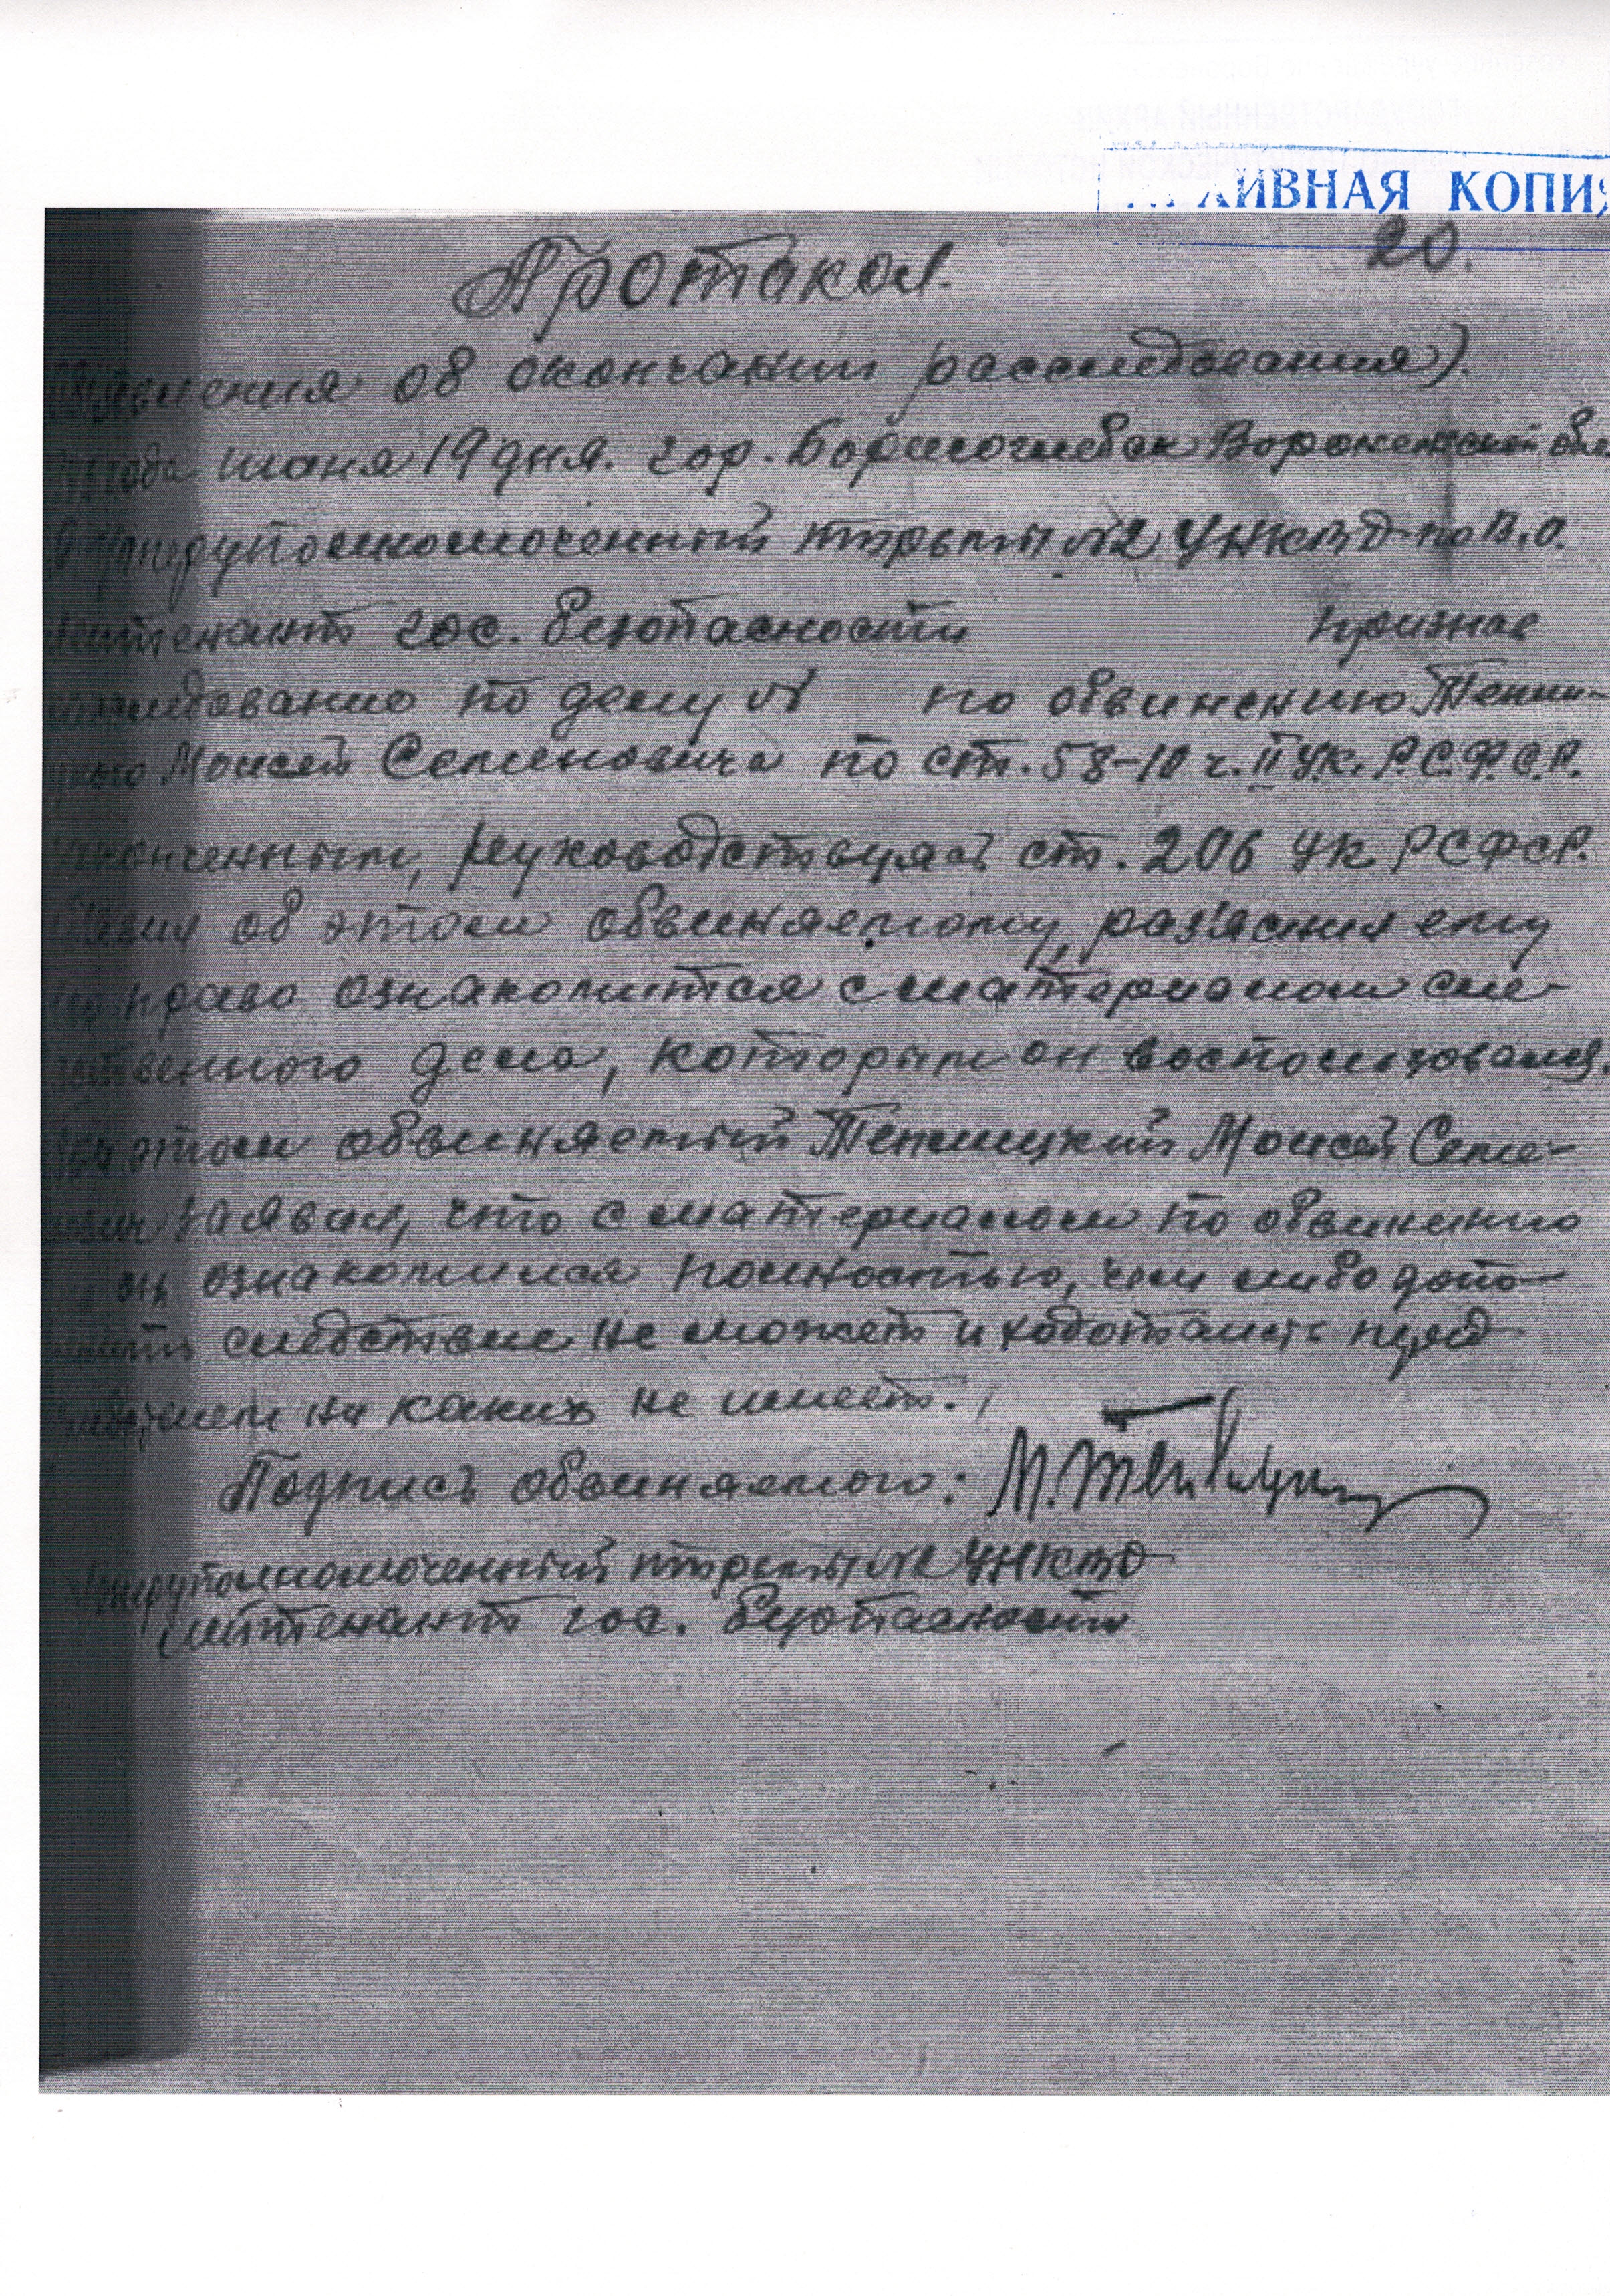 ХИВНАЯ КОПИЯ
20.
Протакол
об окончании расследования).
июня 19 дня. гор. Борисоглебск Воронежской обл.
Оперуполномоченный тюрьмы №2 УНКВД по В.О.
лейтенант гос. безопасности признав
следованию по делу № по обвинению Тепли-
Моисея Семеновича по ст. 58-10 ч. II УК. Р.С.Ф.С.Р.
законченным, руководствуясь ст. 206 УК РСФСР.
об этом обвиняемому, раз'яснил ему
право ознакомится с материалом сле-
дственного дела, которым он воспользовался.
При этом обвиняемый Теплицкий Моисей Семе-
нович заявил, что с материалом по обвинению
он ознакомился полностью, чем либо допо-
лнить следствие не может и ходотамств пред
следствием ни каких не имеет.
Подпись обвиняемого: М. Теплицкий
Оперуполномоченный тюрьмы №2 УНКВД
лейтенант гос. безопасности